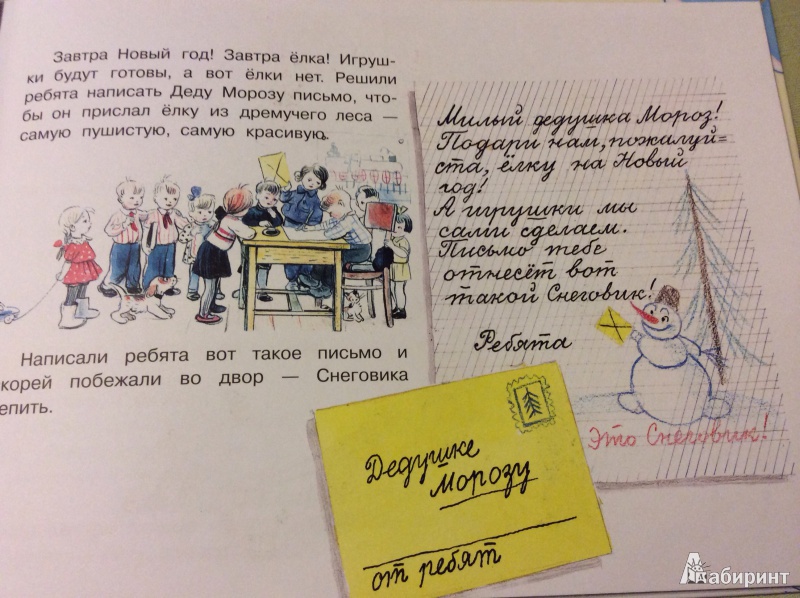 Завтра Новый год! Завтра ёлка! Игруш-
ки будут готовы, а вот ёлки нет. Решили
ребята написать Деду Морозу письмо, что-
бы он прислал ёлку из дремучего леса —
самую пушистую, самую красивую.
Написали ребята вот такое письмо и
скорей побежали во двор — Снеговика
лепить.
Милый дедушка Мороз!
Подари нам, пожалуй=
ста, ёлку на Новый
год!
А игрушки мы
сами сделаем.
Письмо тебе
отнесёт вот
такой Снеговик!
Ребята
Это Снеговик!
Дедушке
Морозу
от ребят
Лабиринт